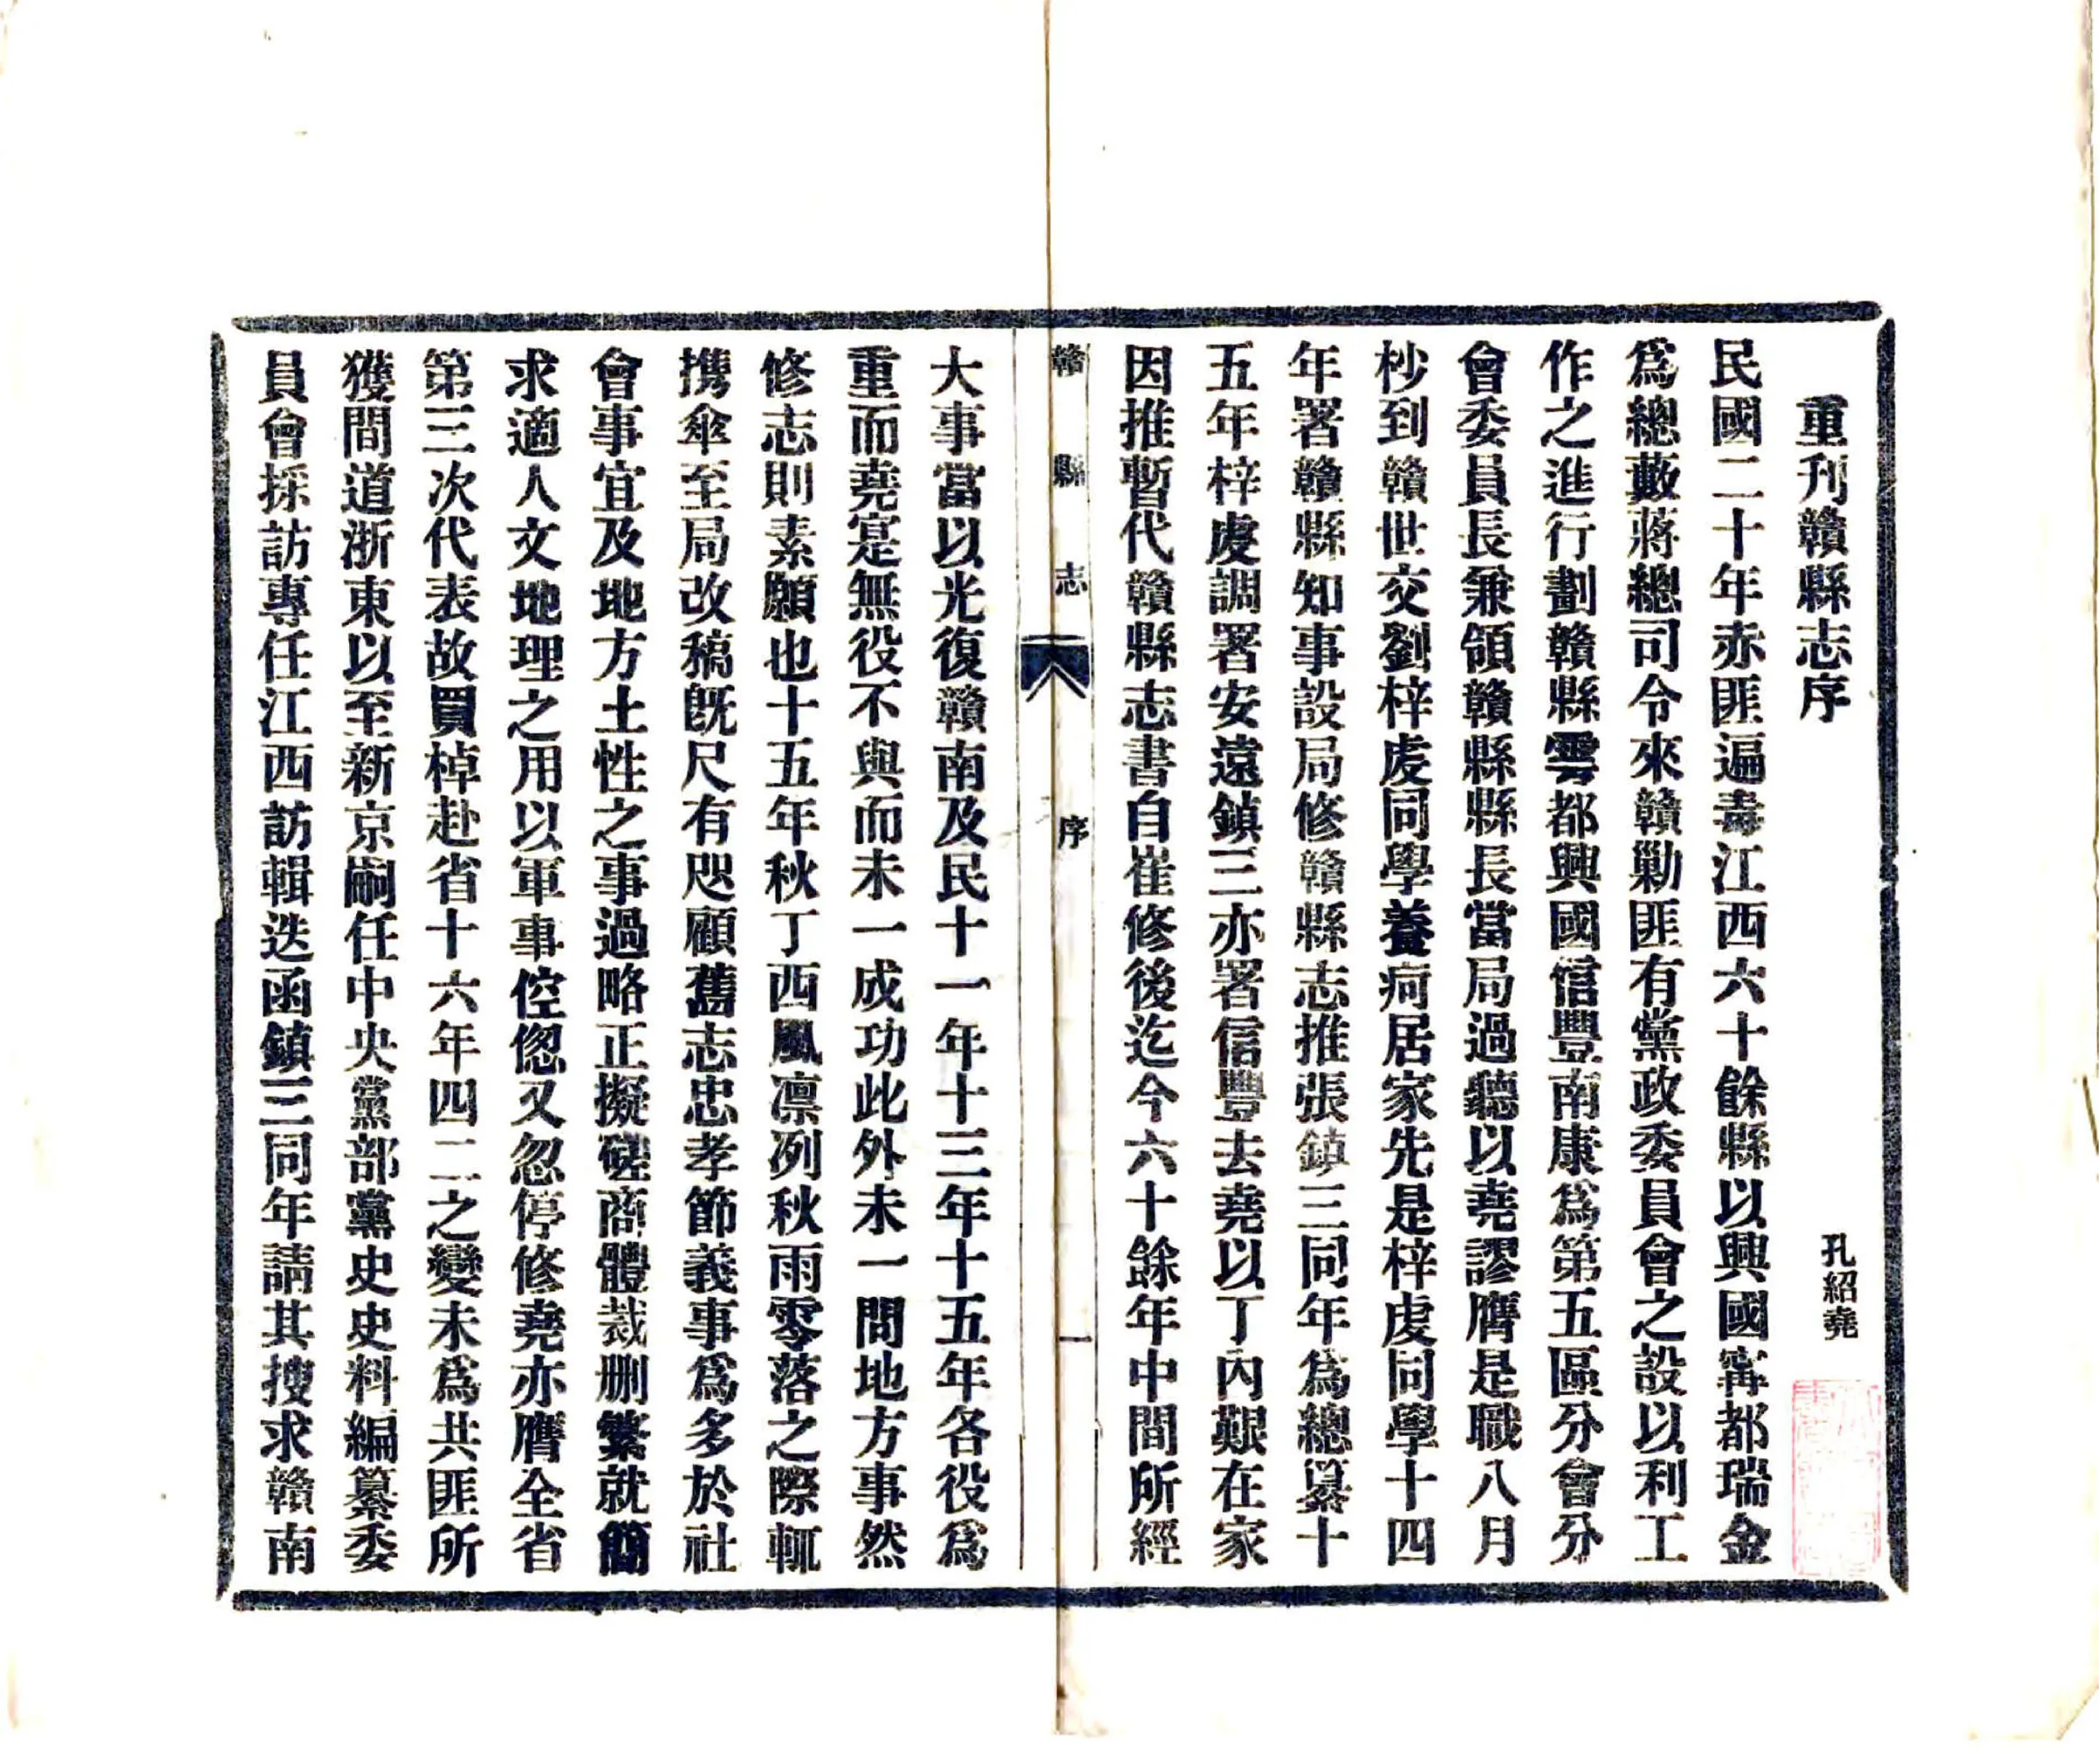 重刊贛縣志序
孔紹堯
民國二十年赤匪遍毒江西六十餘縣以興國甯都瑞金
爲總藪蔣總司令來贛勦匪有黨政委員會之設以利工
作之進行劃贛縣雩都興國信豐南康爲第五區分會分
會委員長兼領贛縣縣長當局過聽以堯謬膺是職八月
杪到贛世交劉梓虔同學養疴居家先是梓虔同學十四
年署贛縣知事設局修贛縣志推張鎮三同年爲總纂十
五年梓虔調署安遠鎮三亦署信豐去堯以丁內艱在家
因推暫代贛縣志書自崔修後迄今六十餘年中間所經
贛縣志
序
一
大事當以光復贛南及民十一年十三年十五年各役爲
重而堯寔無役不與而未一成功此外未一問地方事然
修志則素願也十五年秋丁西風凛冽秋雨零落之際輒
携傘至局改稿旣尺有咫顧舊志忠孝節義事爲多於社
會事宜及地方土性之事過略正擬磋商體裁删繁就簡
求適人文地理之用以軍事倥偬又忽停修堯亦膺全省
第三次代表故買棹赴省十六年四二之變未爲共匪所
獲間道浙東以至新京嗣任中央黨部黨史史料編纂委
員會採訪專任江西訪輯迭函鎮三同年請其搜求贛南